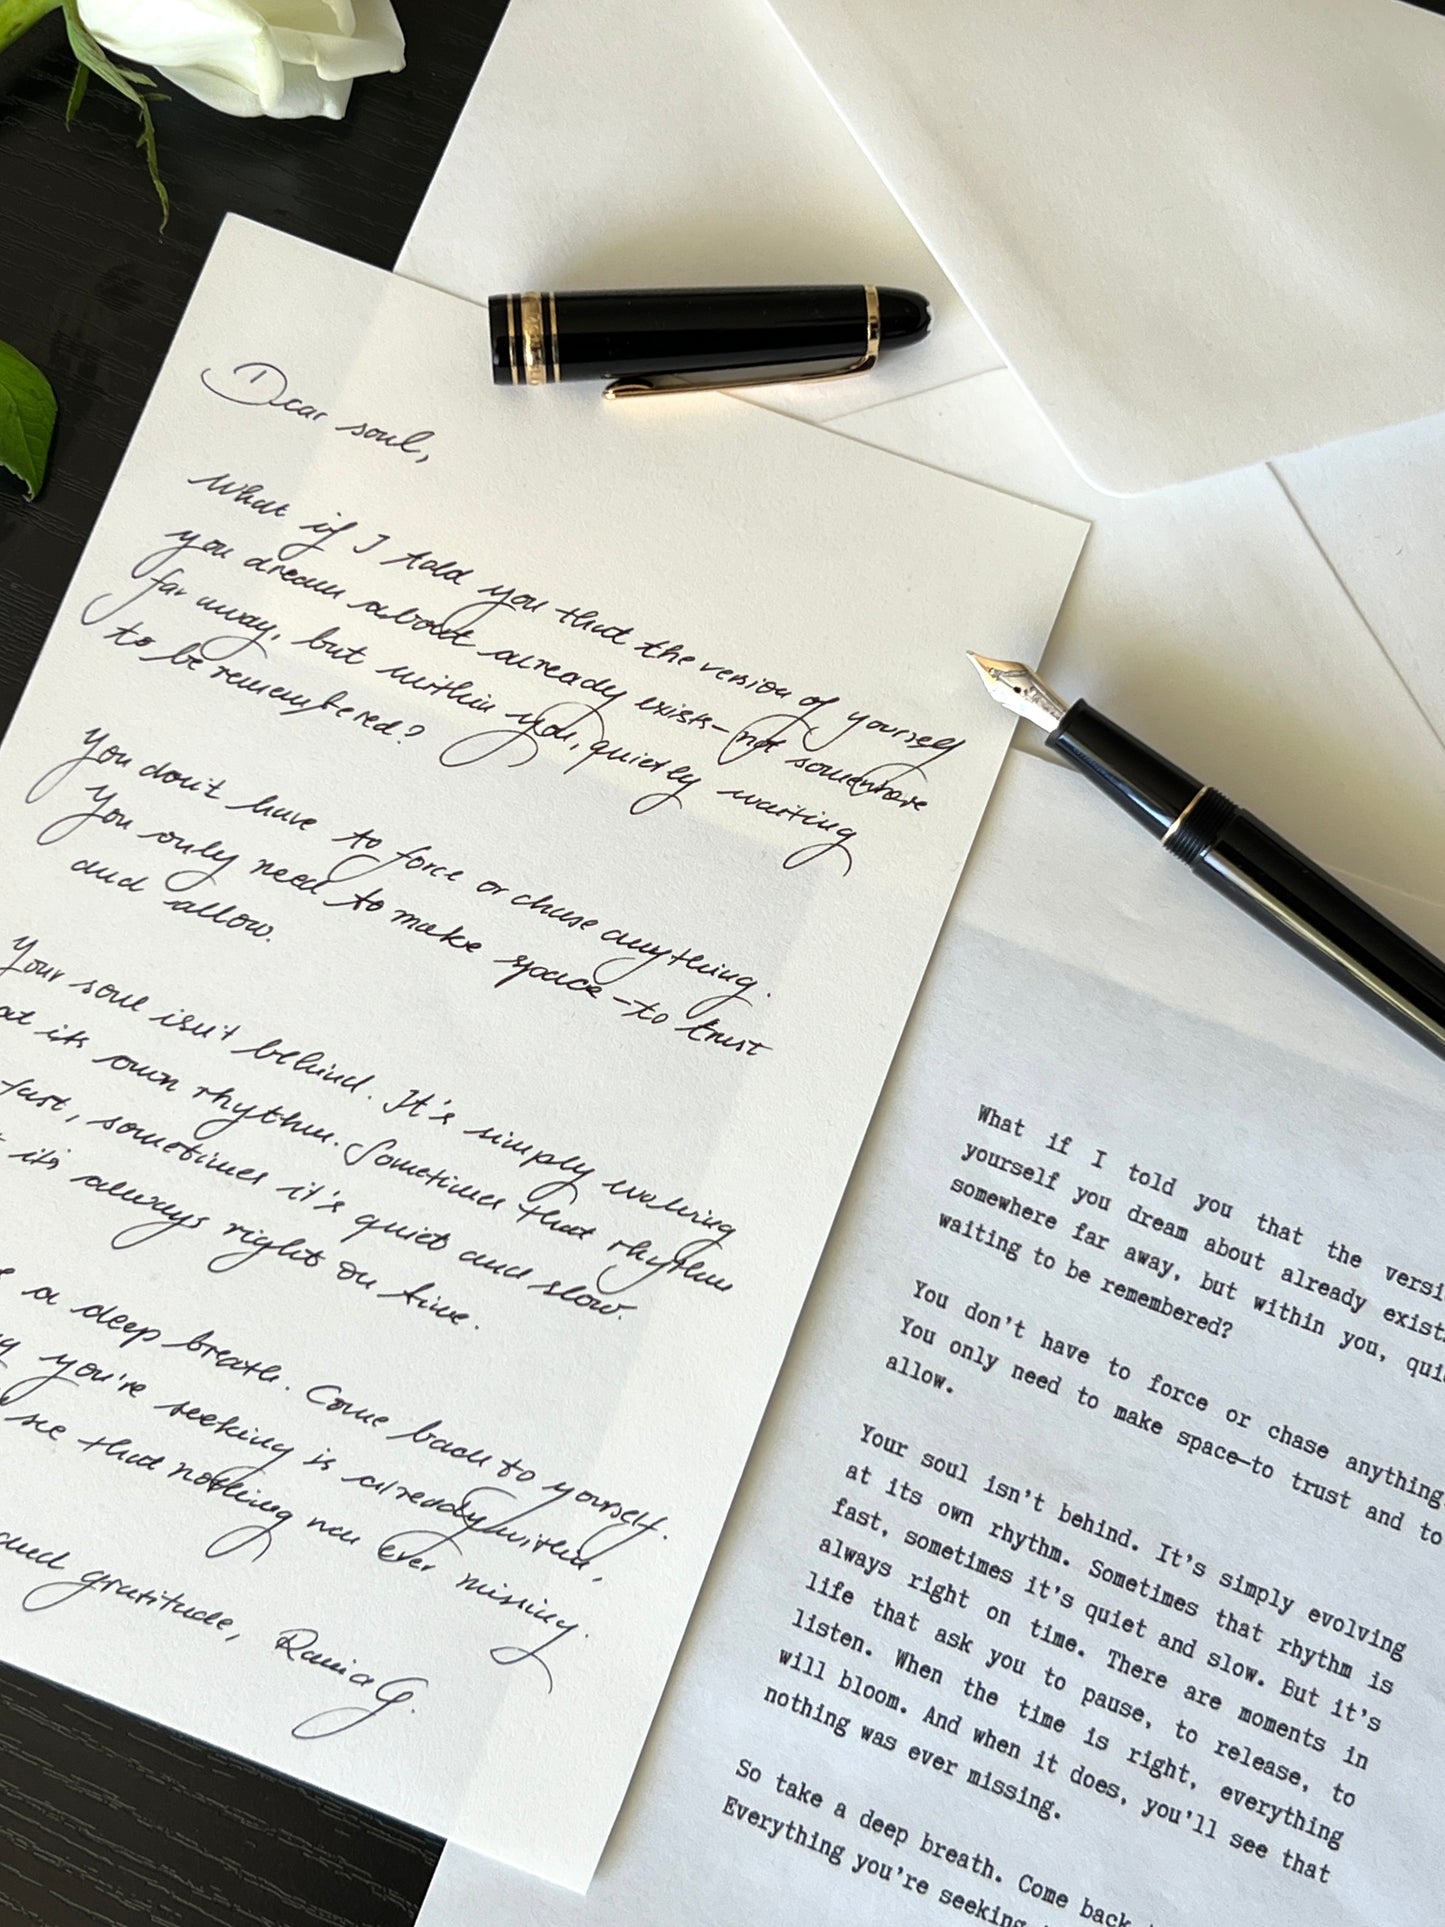 Dear soul,
What if I told you that the version of yourself
you dream about already exists—not somewhere
far away, but within you, quietly waiting
to be remembered?
You don't have to force or chase anything.
You only need to make space—to trust
and allow.
Your soul isn't behind. It's simply walking
at its own rhythm. Sometimes that rhythm
fast, sometimes it's quiet and slow.
it's always right on time.
a deep breath. Come back to yourself.
you're seeking is already within,
see that nothing was ever missing.
and gratitude, Rania G.
What if I told you that the versi
yourself you dream about already exist
somewhere far away, but within you, qui
waiting to be remembered?
You don't have to force or chase anything
You only need to make space—to trust and to
allow.
Your soul isn't behind. It's simply evolving
at its own rhythm. Sometimes that rhythm is
fast, sometimes it's quiet and slow. But it's
always right on time. There are moments in
life that ask you to pause, to release, to
listen. When the time is right, everything
will bloom. And when it does, you'll see that
nothing was ever missing.
So take a deep breath. Come back
Everything you're seeking